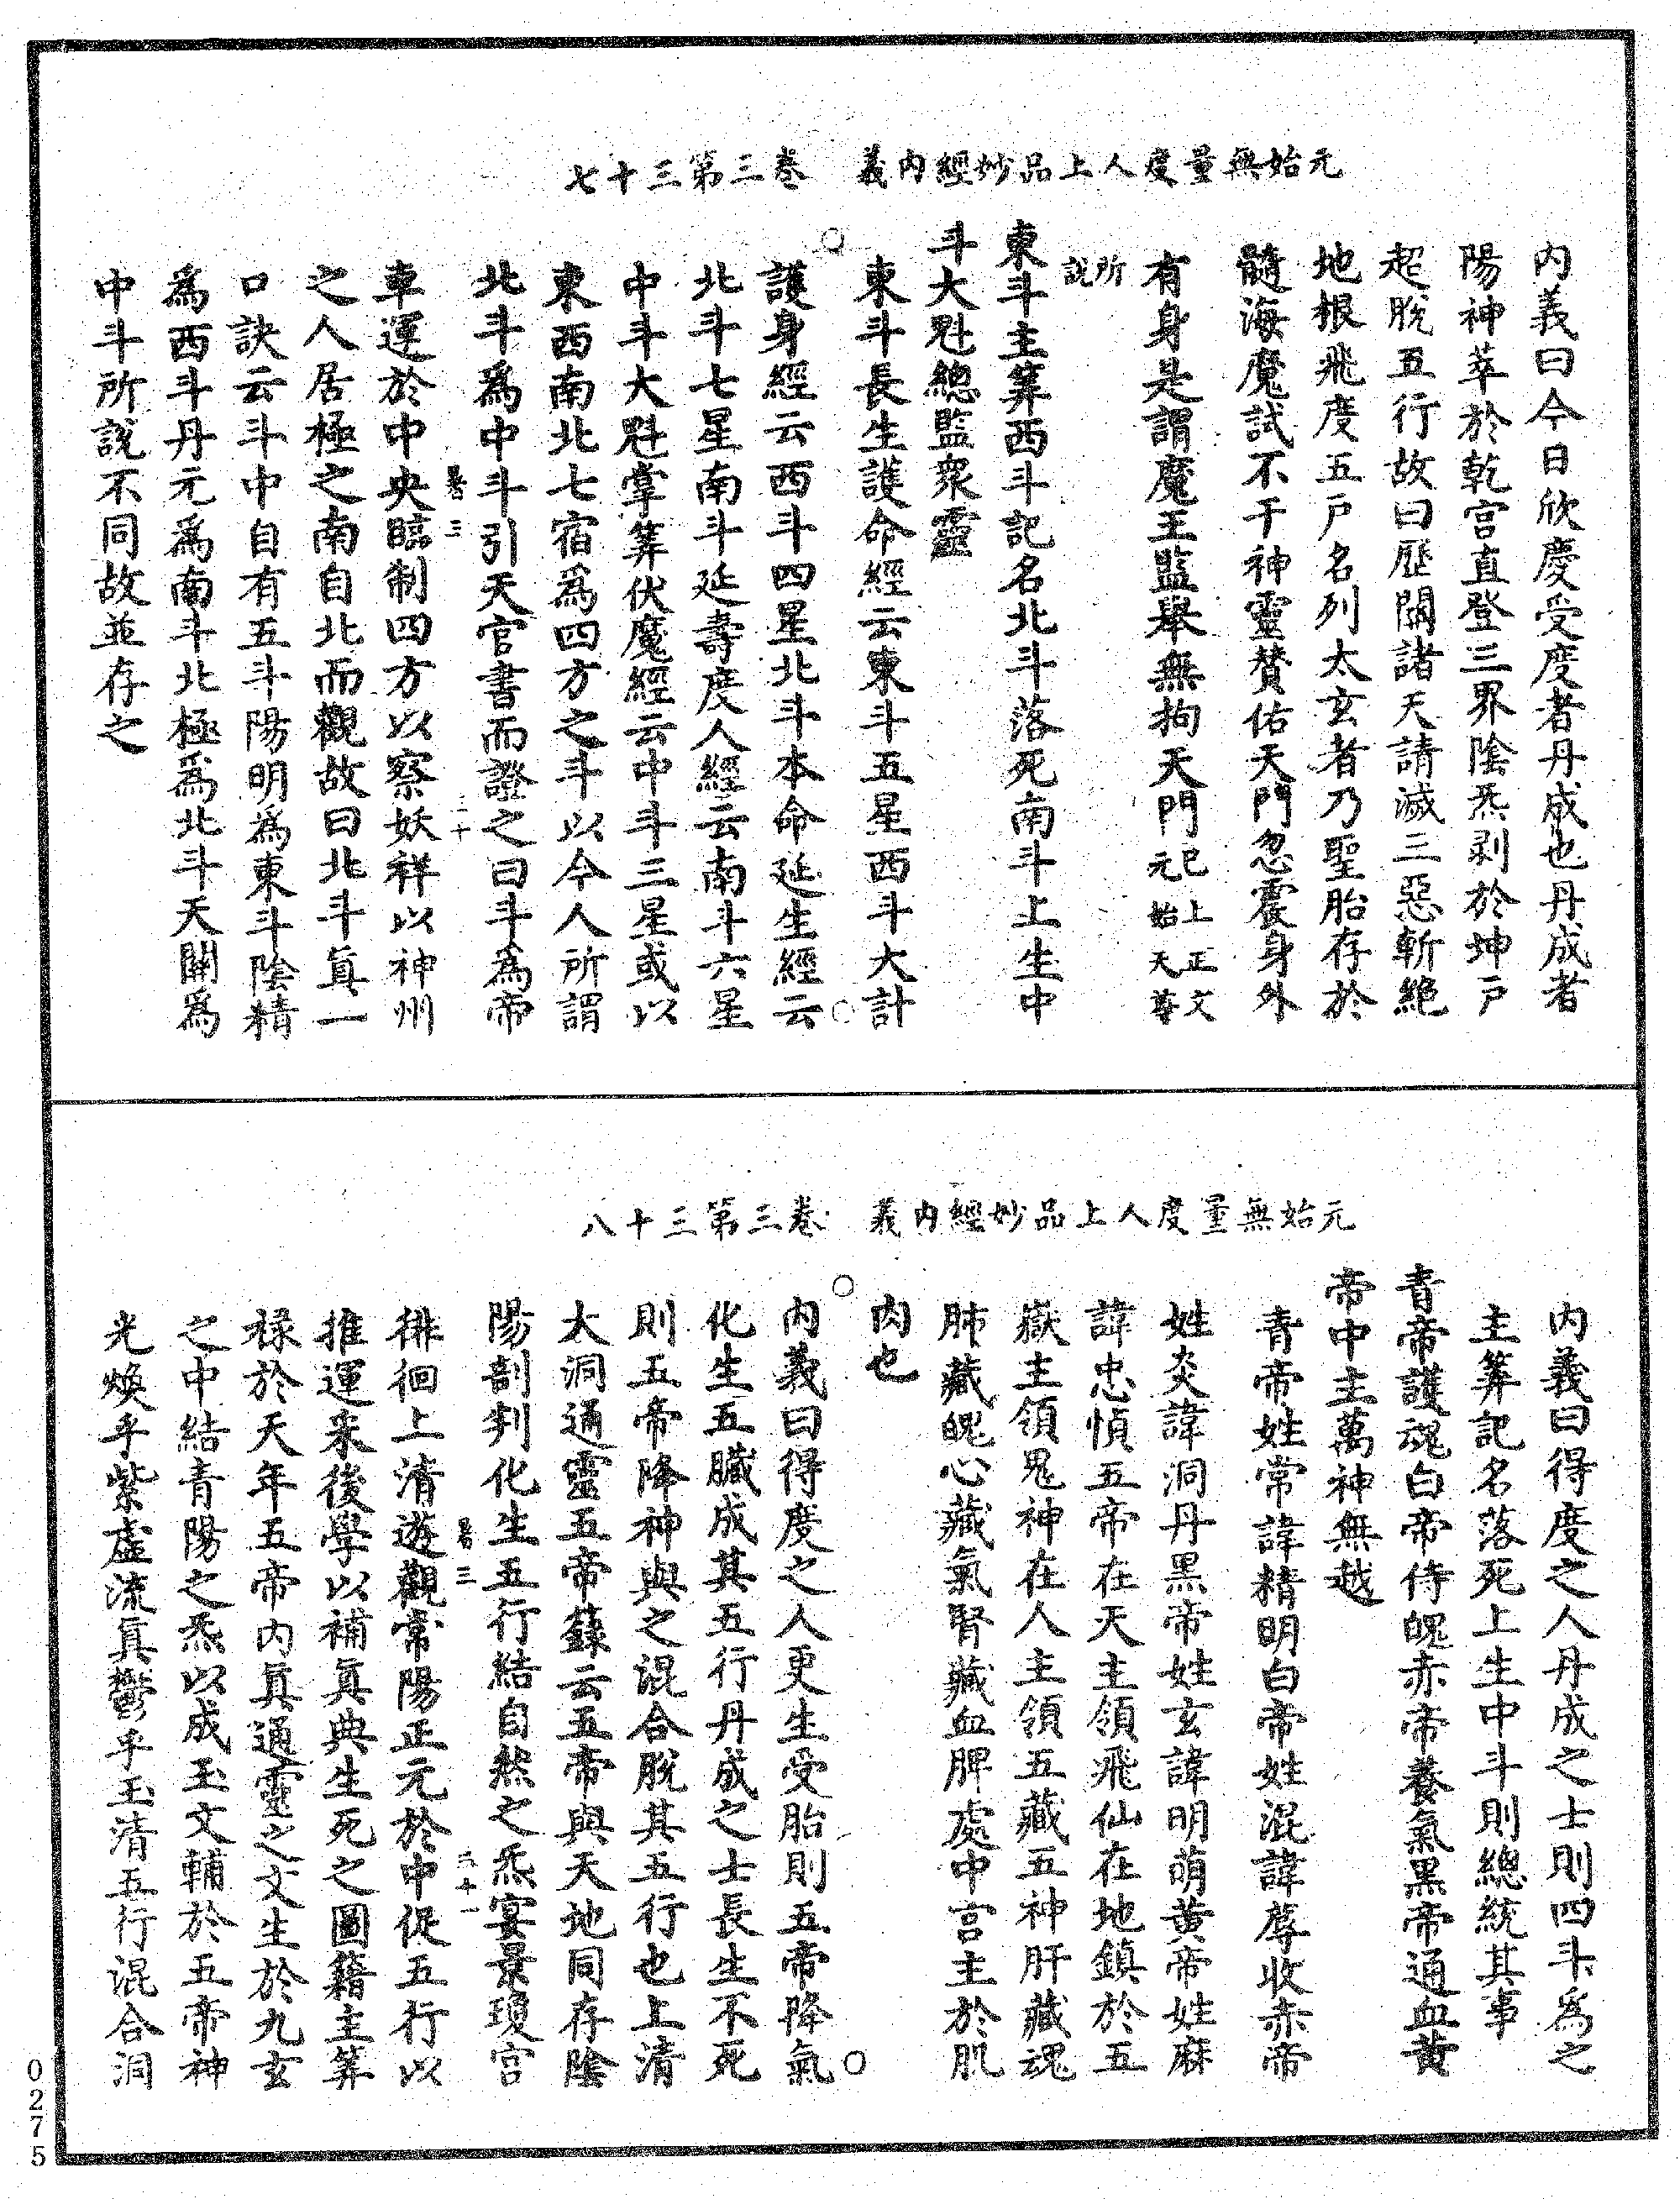 元始無量度人上品妙經內義　卷三第三十七
內義曰今日欣慶受度者丹成也丹成者
陽神萃於乾宮直登三界陰炁剥於坤戶
超脫五行故曰歷關諸天請滅三惡斬絕
地根飛度五戶名列太玄者乃聖胎存於
髓海魔試不干神靈賛佑天門忽震身外
有身是謂魔王監舉無拘天門已上正文元始天尊
所說
東斗主筭西斗記名北斗落死南斗上生中
斗大魁總監衆靈
東斗長生護命經云東斗五星西斗大計
護身經云西斗四星北斗本命延生經云
北斗七星南斗延壽度人經云南斗六星
中斗大魁掌筭伏魔經云中斗三星或以
東西南北七宿爲四方之斗以今人所謂
北斗爲中斗引天官書而證之曰斗為帝
暑三
二十
車運於中央臨制四方以察妖祥以神州
之人居極之南自北而觀故曰北斗眞一
口訣云斗中自有五斗陽明爲東斗陰精
爲西斗丹元爲南斗北極爲北斗天關爲
中斗所說不同故並存之
元始無量度人上品妙經內義　卷三第三十八
內義曰得度之人丹成之士則四斗爲之
主筭記名落死上生中斗則總統其事
青帝護魂白帝侍魄赤帝養氣黑帝通血黃
帝中主萬神無越
青帝姓常諱精明白帝姓混諱蓐收赤帝
姓炎諱洞丹黑帝姓玄諱明萌黃帝姓麻
諱忠慎五帝在天主領飛仙在地鎮於五
嶽主領鬼神在人主領五藏五神肝藏魂
肺藏魄心藏氣腎藏血脾處中宮主於肌
肉也
內義曰得度之人更生受胎則五帝降氣
化生五臟成其五行丹成之士長生不死
則五帝降神與之混合脫其五行也上清
太洞通靈五帝籙云五帝與天地同存陰
陽剖判化生五行結自然之炁宴景瓊宮
暑三
二十一
徘徊上清遊觀常陽正元於中促五行以
推運来後學以補眞典生死之圖籍主筭
祿於天年五帝內眞通靈之文生於九玄
之中結青陽之炁以成玉文輔於五帝神
光煥乎紫虛流眞鬱乎玉清五行混合洞
0275